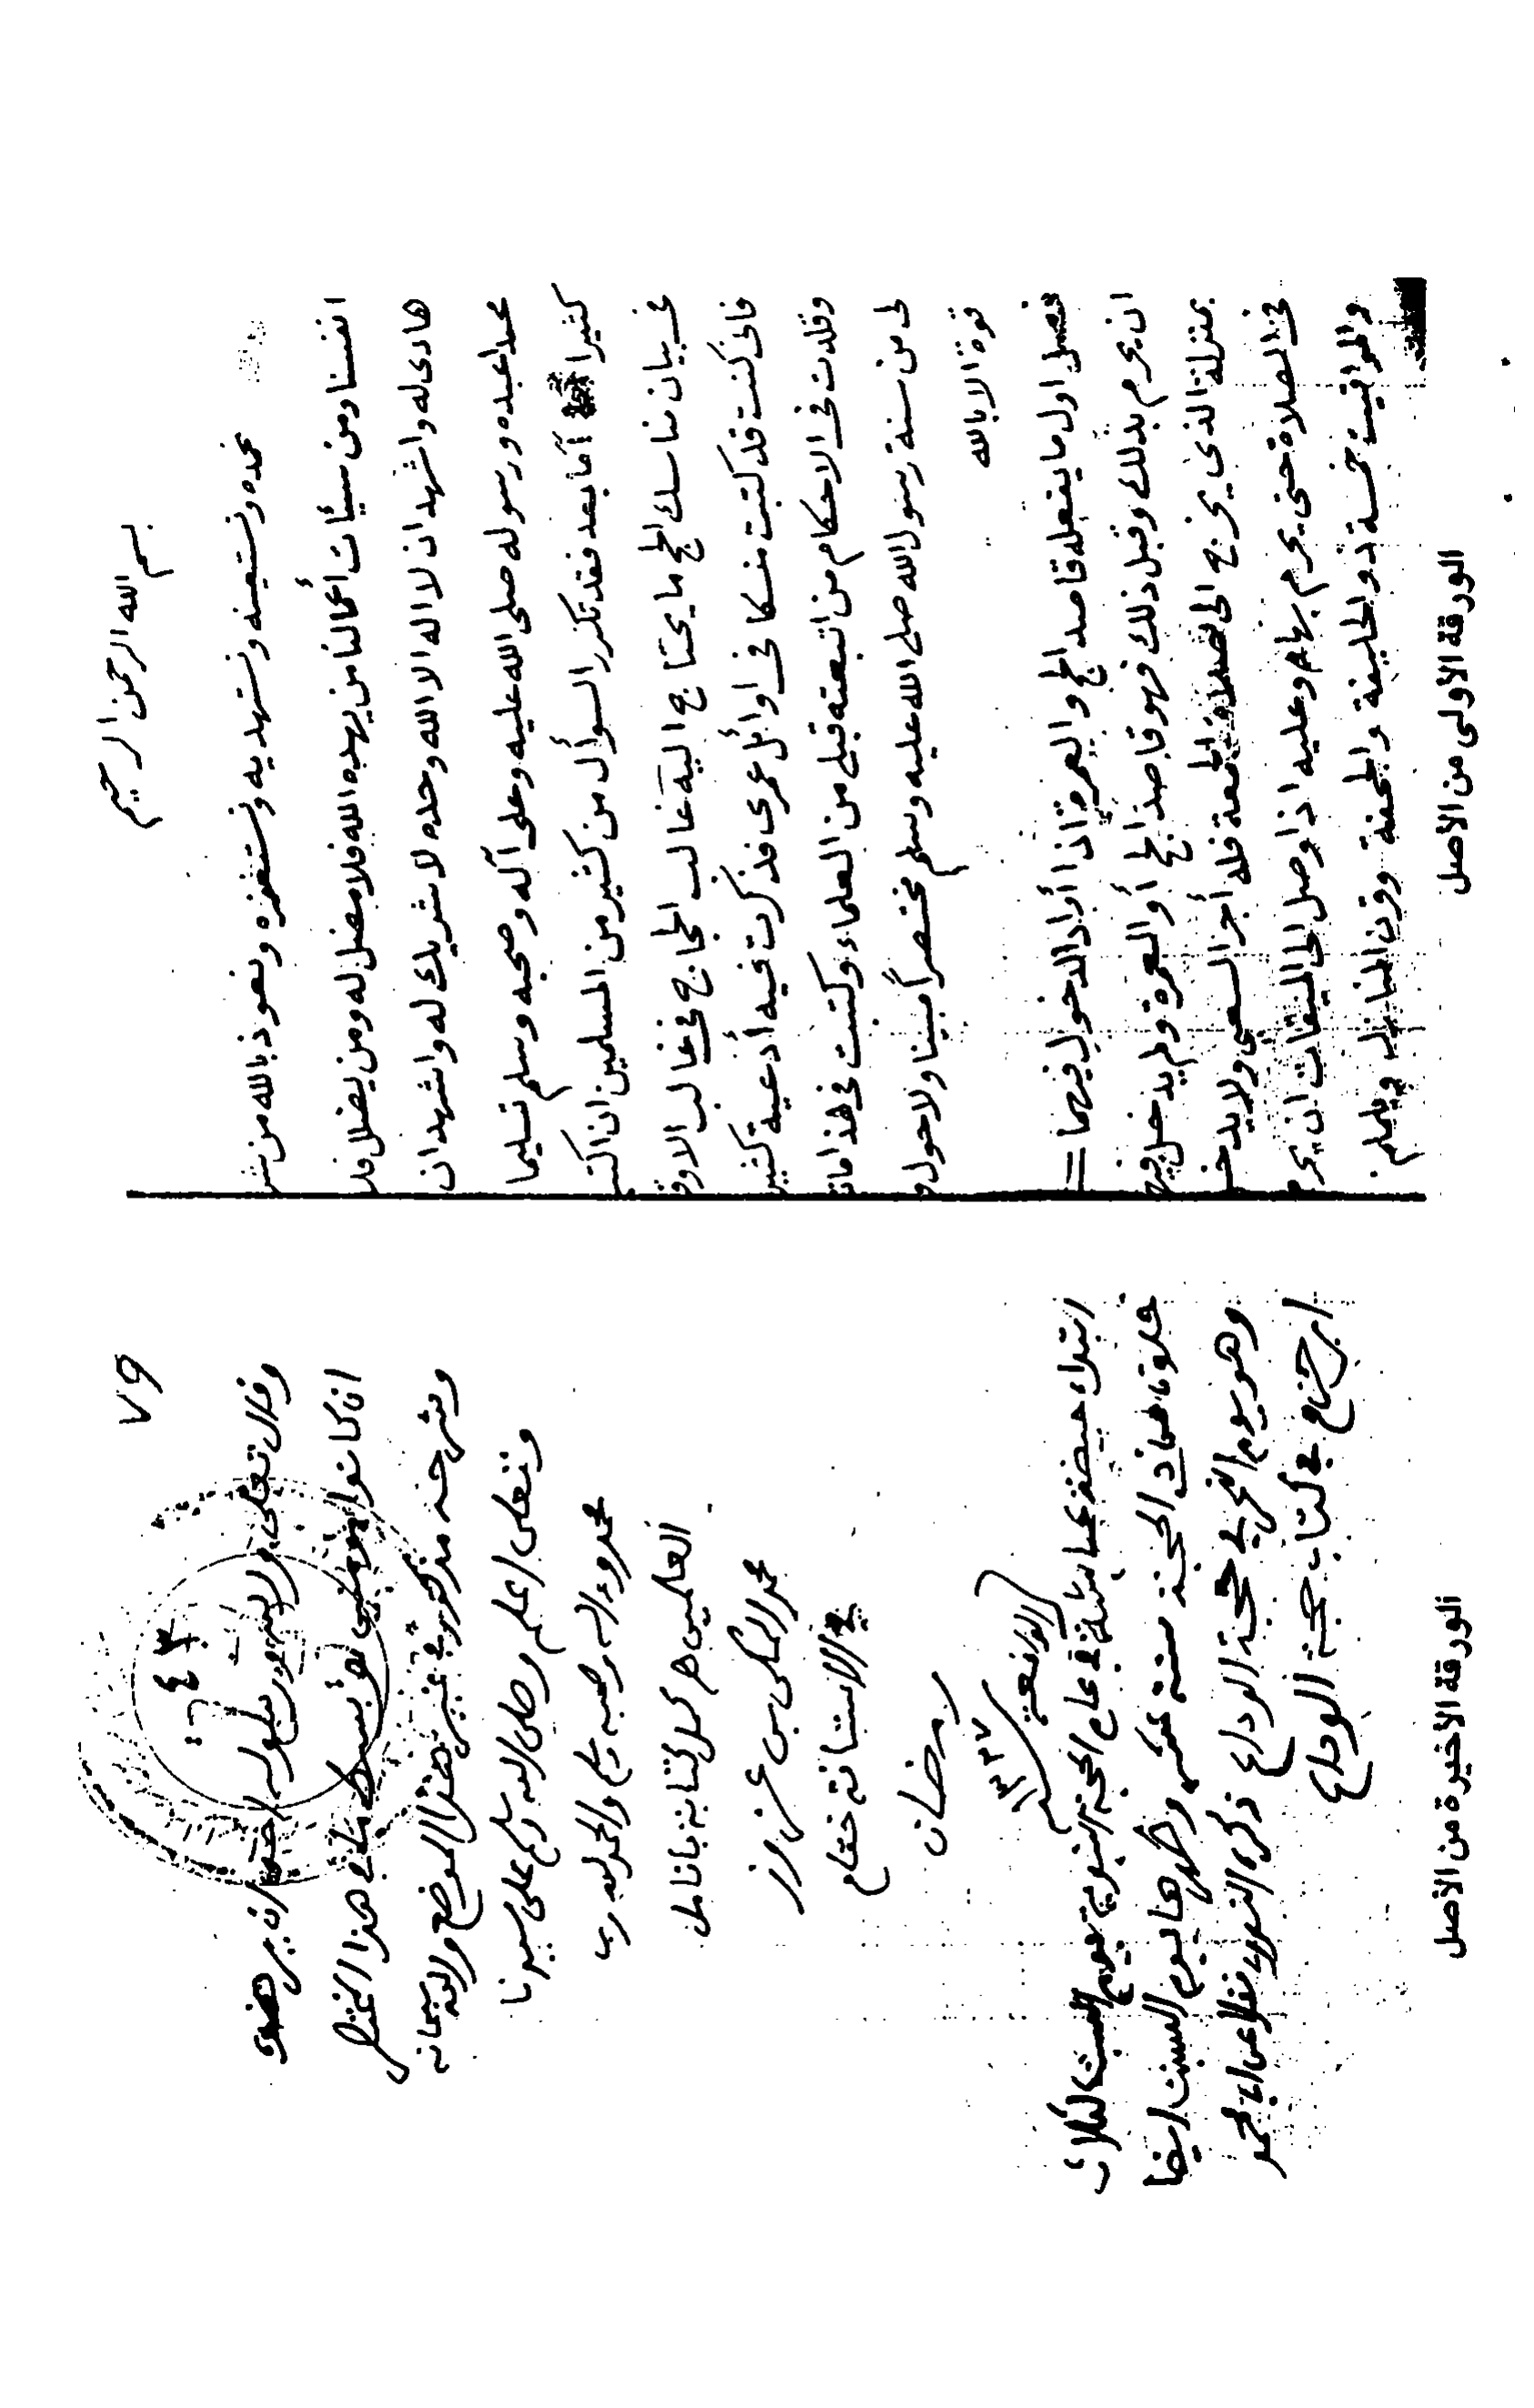 بسم الله الرحمن الرحيم
نحمده ونستعينه ونستهديه ونستغفره ونعوذ بالله من شر
انفسنا ومن سيئات أعمالنا من يهده الله فلا مضل له ومن يضلل فلا
هادى له واشهد ان لا اله الا الله وحده لا شريك له واشهد ان
محمدا عبده ورسوله صلى الله عليه وعلى آله وصحبه وسلم تسليما
كثيرا أما بعد فقد تكرر السوأل من كثير من المسلمين ان اكتب
فى بيان مناسك الحج ما يحتاج اليه غالب الحجاج فى غالب الاوق
فانى كنت قد كتبت منسكا فى اوائل عمرى فذكرت فيه أدعية كثير
وقلدت فى الاحكام من اتبعته قبلى من العلماء وكتبت فى هذا ما
لى من سنة رسول الله صلى الله عليه وسلم مختصراً مبينا ولا حول و
قوة الا بالله
فصل اول ما يفعله قاصد الحج والعمرة اذا أراد الدخول فيهما =
ان يحرم بذلك وقبل ذلك فهو قاصد الحج أو العمرة ولم يدخل فيه
بمنزلة الذى يخرج الى صلاة الجمعة فله أجر السعى ولا يدخ
فى الصلاة حتى يحرم بها وعليه اذا وصل الى الميقات ان يحرم
والمواقيت خمسة ذو الحليفة والجحفة وقرن المنازل ويلملم
الورقة الأولى من الأصل
٧٩
٤٣
وقال تعلى والله ورسوله احق ان يرضوه
ان كانوا مومنين هذا المختصر
وشرحته مذكور فى غير هذا الموضع والله سبحانه
وتعلى اعلم وصلى الله وسلم على سيدنا
محمد وءاله وصحبه وسلم والحمد لله رب
العلمين
محمد المكى بن عزوز
الاستانة ختام
رمضان
١٣٣٢
ابتداء حيضة عائشة فى عام الحجة النبوية يوم السبت لثلاث
خلون من ذى الحجة سنة عشر وطهرها يوم السبت ايضا
وهو يوم النحر فى حجة الوداع ذكره النووى نقلا عن ابى محمد
ابن حزم فى كتاب حجة الوداع
الورقة الأخيرة من الأصل